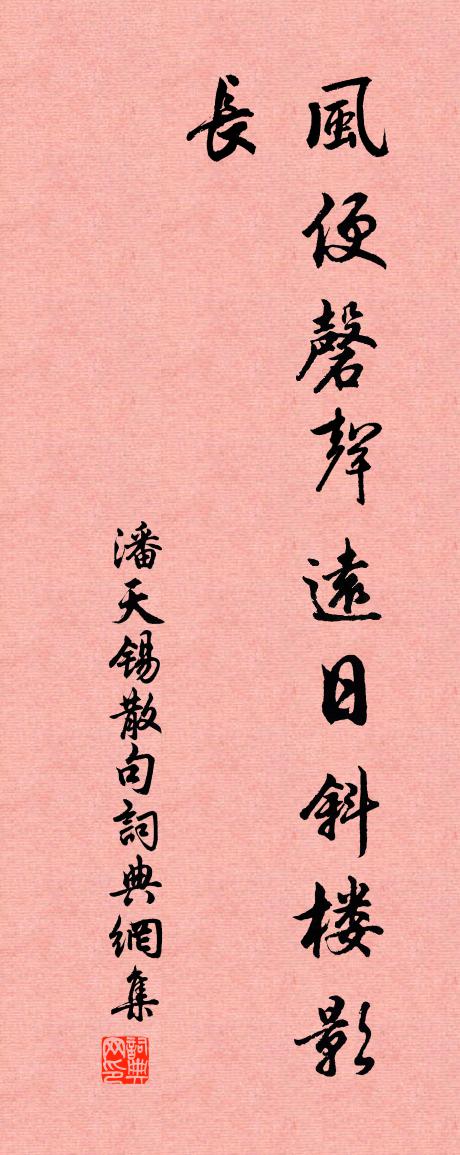 風便磬聲遠日斜楼影
長
潘天錫散句詞典網集
詞典网印